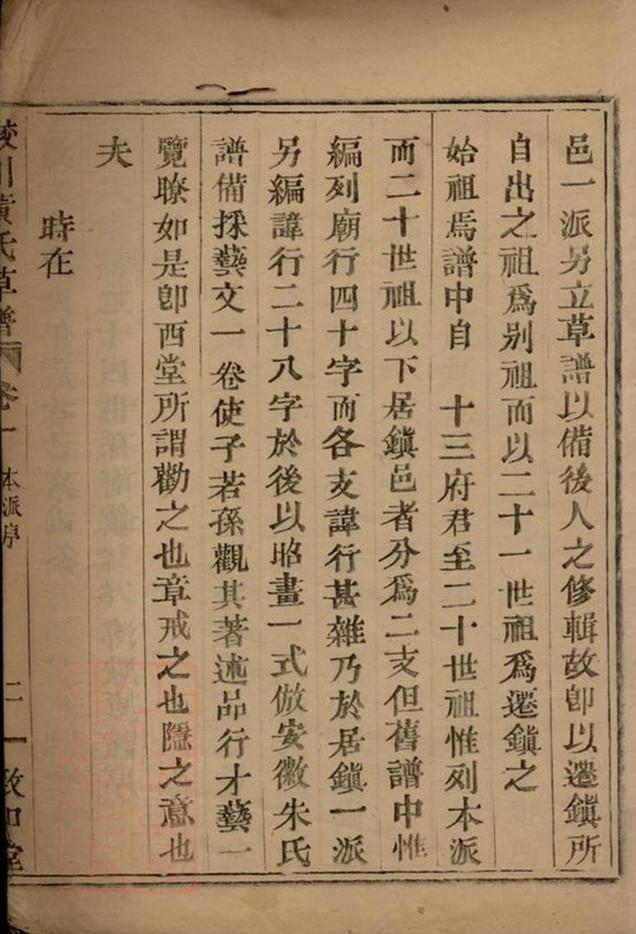 邑一派另立草譜以備後人之修輯故卽以遷鎮所
自出之祖爲別祖而以二十一世祖爲遷鎮之
始祖焉譜中自 十三府君至二十世祖惟列本派
而二十世祖以下居鎮邑者分爲二支但舊譜中惟
編列廟行四十字而各支諱行甚雜乃於居鎮一派
另編諱行二十八字於後以昭畫一式倣安徽朱氏
譜備採藝文一卷使子若孫觀其著述品行才藝一
覽瞭如是卽西堂所謂勸之也章戒之也隱之意也
夫
時在
川黃氏草譜 卷一 本派序 二 敦和堂